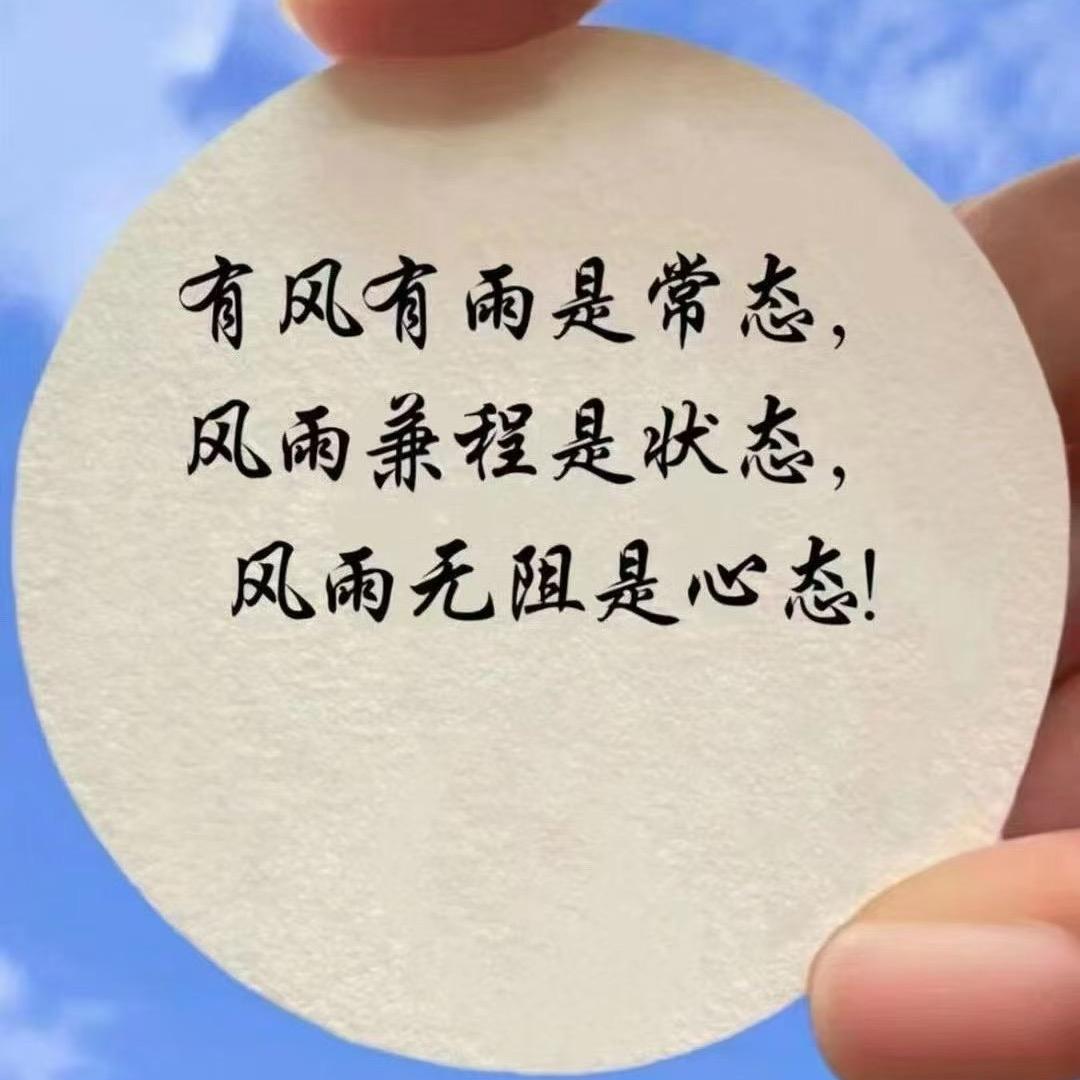 有风有雨是常态，
风雨兼程是状态，
风雨无阻是心态!